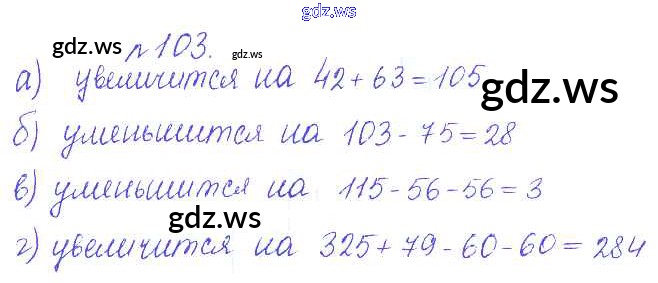 gdz.ws
gdz.ws
№103.
gdz.ws
а) увеличится на 42 + 63 = 105
gdz.ws
б) уменьшится на 103 - 75 = 28
в) уменьшится на 115 - 56 - 56 = 3
gdz.ws
г) увеличится на 325 + 79 - 60 - 60 = 284